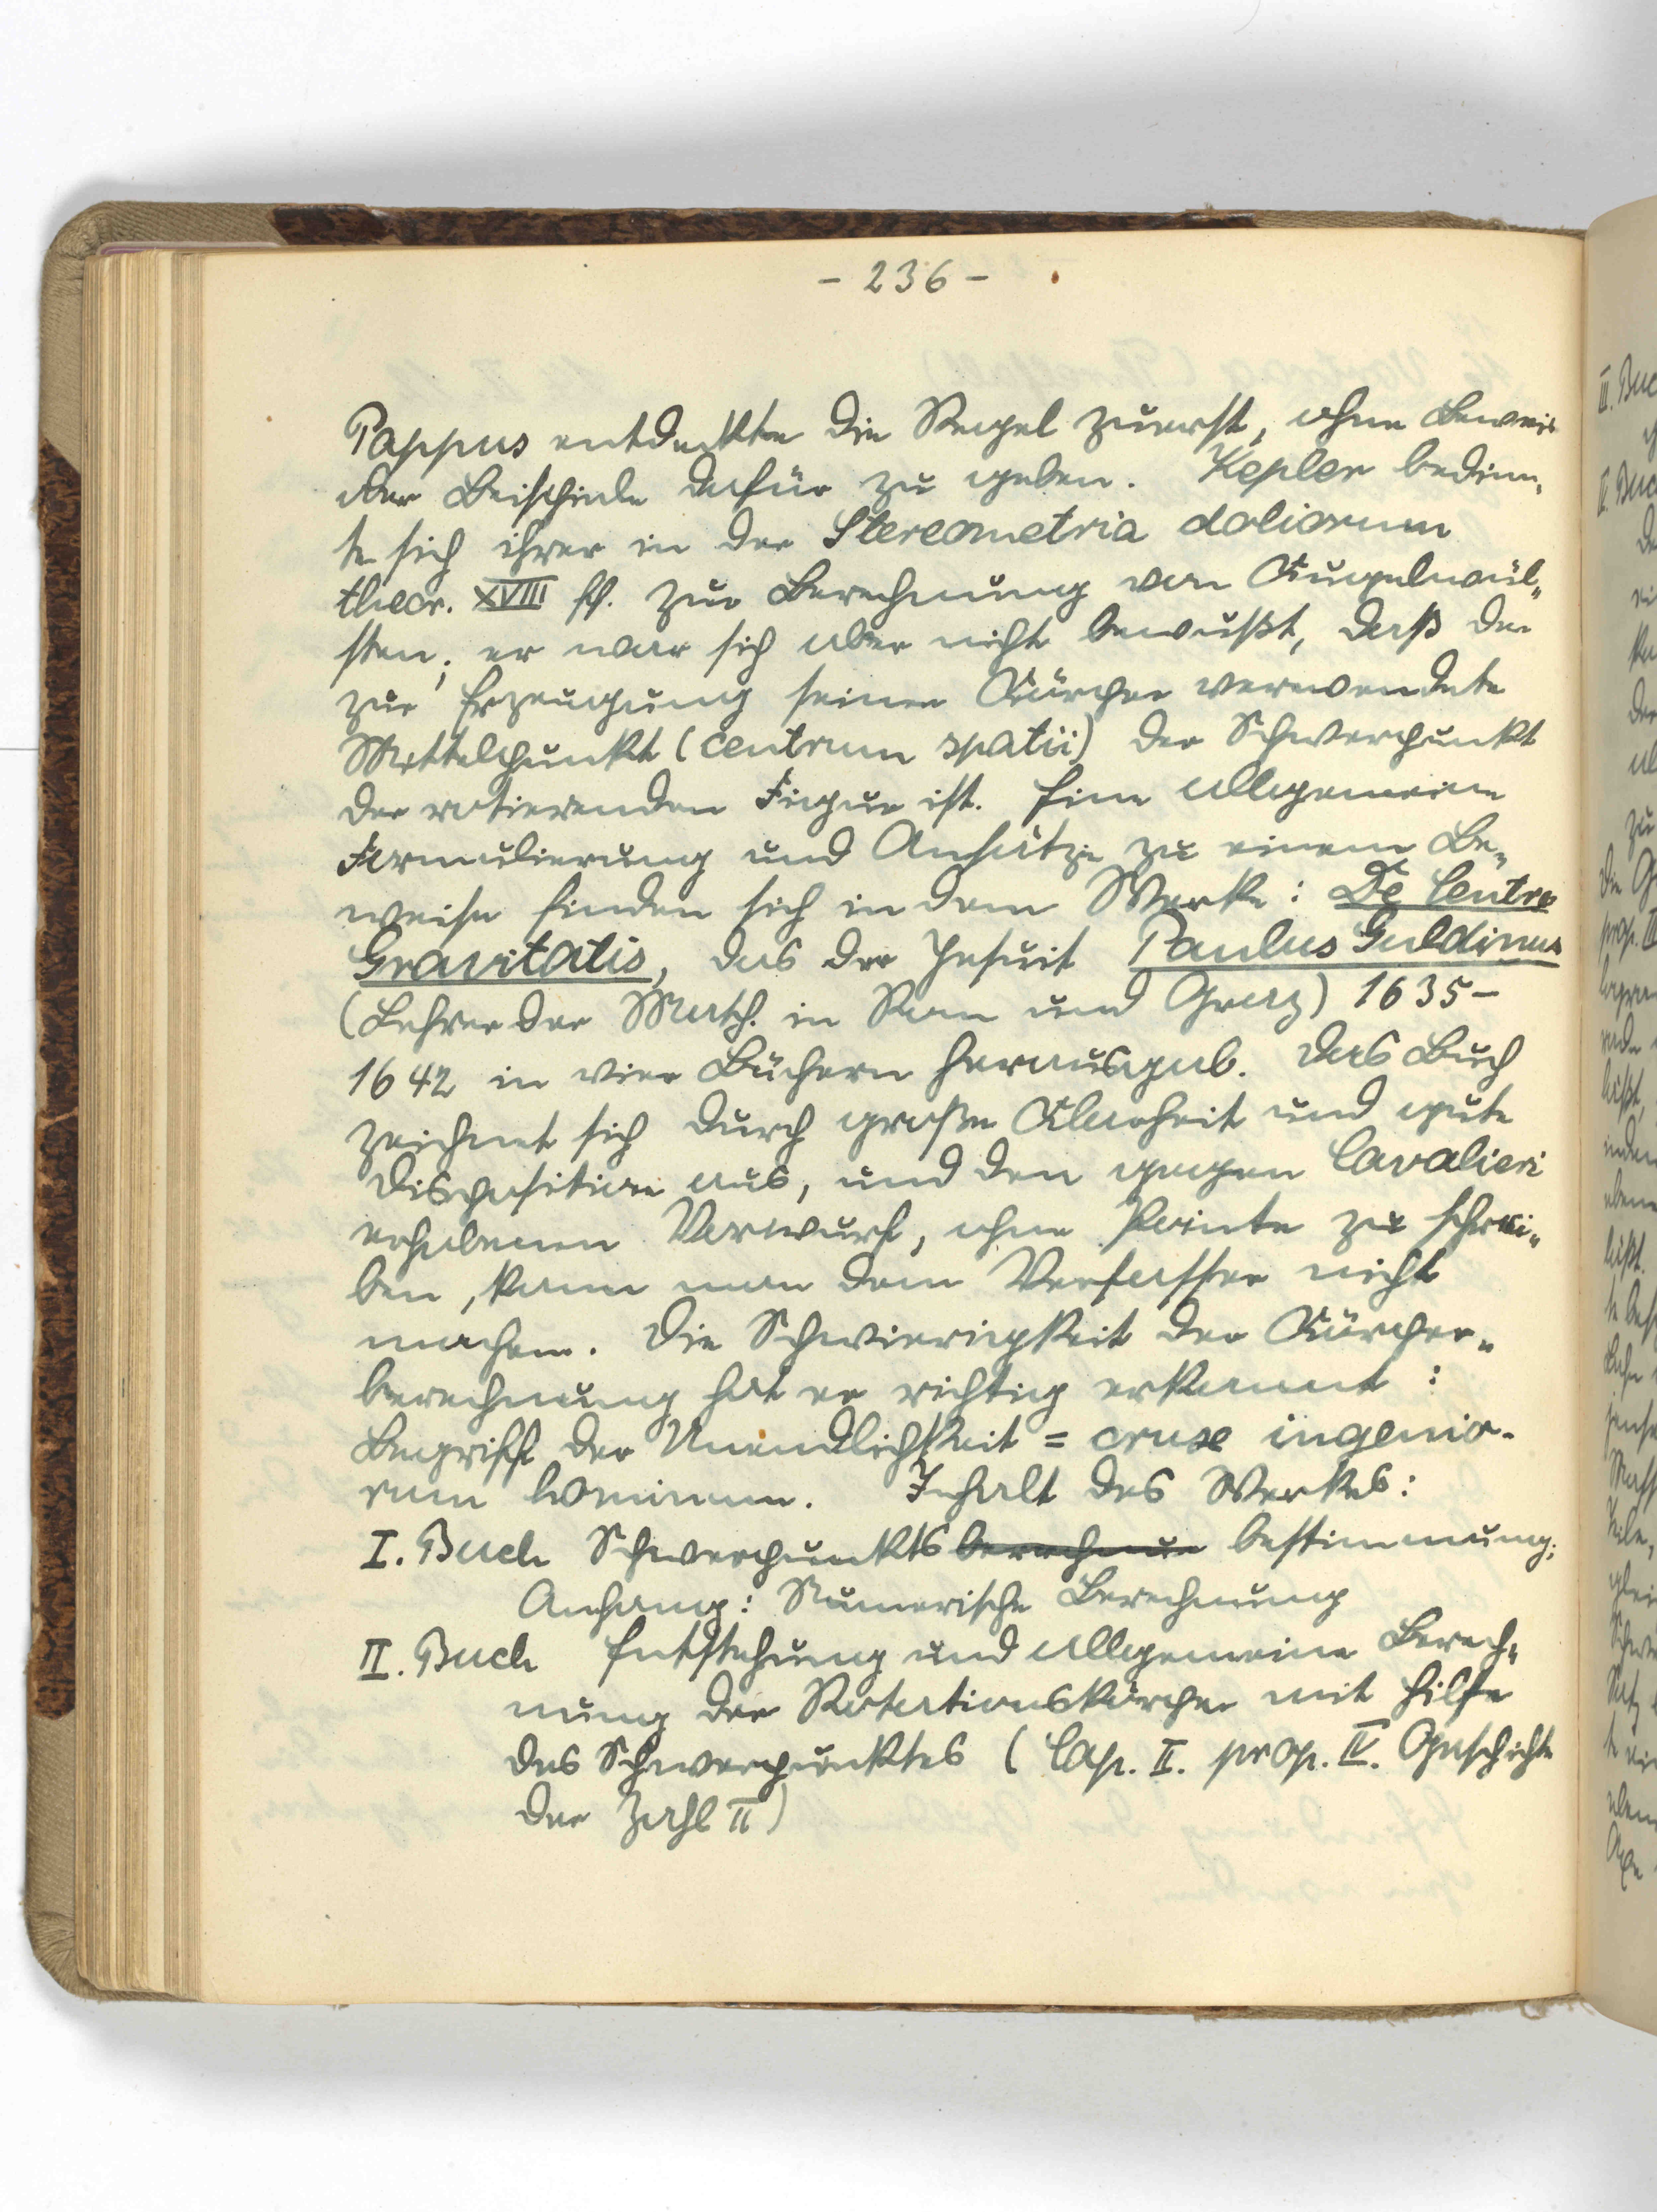 - 236 -
Pappus entdeckte die Regel zuerst, ohne Beweis
oder Beispiele dafür zu geben. Kepler bedien„
te sich ihrer in der Stereometria doliorum
theor. XVIII ff. zur Berechnung von Kugelwül„
sten; er war sich aber nicht bewußt, daß der
zur Erzeugung seiner Körper verwendete
Mittelpunkt (centrum spatii) der Schwerpunkt
der rotierenden Figur ist. Eine allgemeine
Formulierung und Ansätze zu einem Be„
weise finden sich in dem Werke: De Centro
Gravitatis, das der Jesuit Paulus Guldinus
(Lehrer der Math. in Rom und Graz) 1635-
1642 in vier Büchern herausgab. Das Buch
zeichnet sich durch große Klarheit und gute
Disposition aus, und den gegen Cavalieri
erhobenen Vorwurf, ohne Pointe zu schrei„
ben, kann man dem Verfasser nicht
machen. Die Schwierigkeit der Körper„
berechnung hat er richtig erkannt:
Begriff der Unendlichkeit = cruse ingenio-
rum hominum. Inhalt des Werkes:
I. Buch Schwerpunkts berechnun bestimmung;
Anhang: Numerische Berechnung
II. Buch Entstehung und allgemeine Berech„
nung der Rotationskörper mit Hilfe
des Schwerpunktes (Cap. II. prop. IV. Geschichte
der Zahl π)